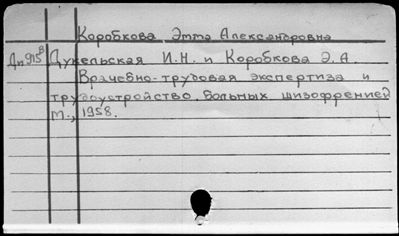 Коробкова Этта Александровна
Дн915в Дукельская И.Н. и Коробкова Э.А.
Врачебно-трудовая экспертиза и
трудоустройство больных шизофренией
М., 1958.